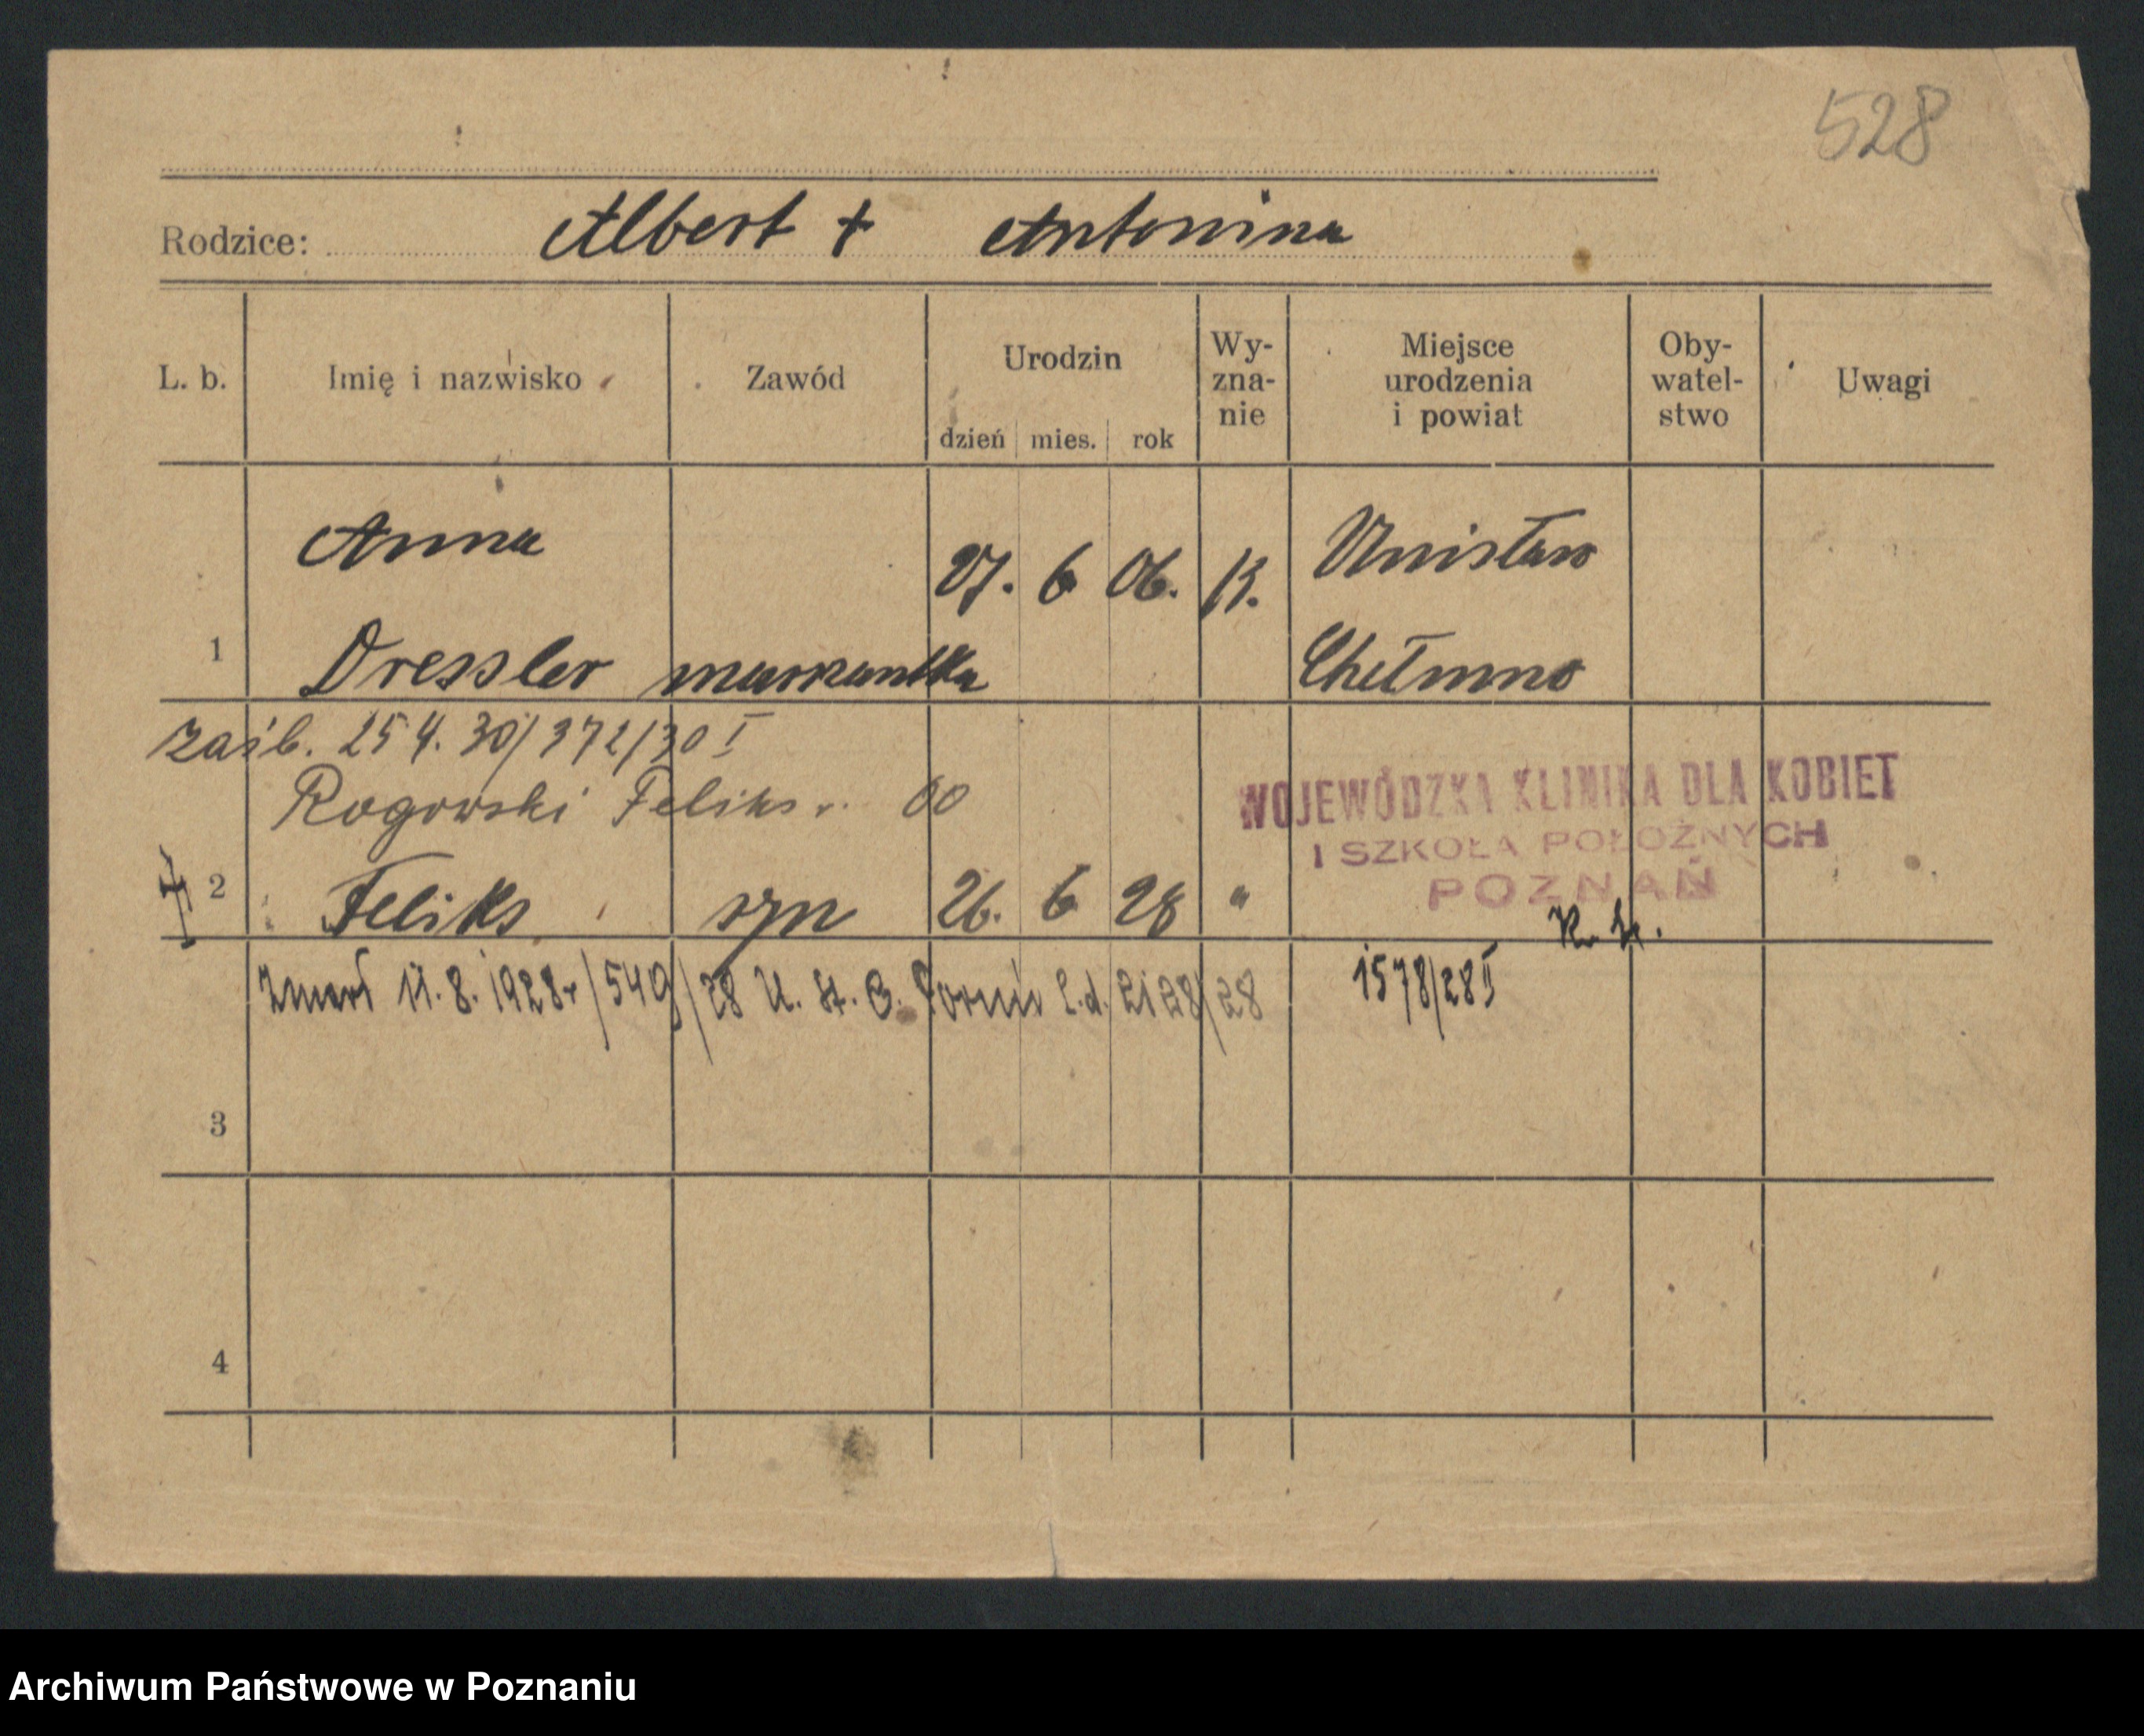 528
Rodzice: Albert + Antonina
L. b. Imię i nazwisko Zawód Urodzin dzień mies. rok Wy-zna-nie Miejsce urodzenia i powiat Oby-watel-stwo Uwagi
Anna 27. 6 06. K. Unisław
1 Dressler Chełmno
zaśb. 25 4. 30/372/30 I
Rogowski Feliks 00
WOJEWÓDZKA KLINIKA DLA KOBIET
I SZKOŁA POŁOŻNYCH
POZNAŃ
2 Feliks syn 26. 6 28 "
zmarł 11. 8. 1928r/549/28 U. St. C. Toruń L.d. 2128/28 1578/28 II
3
4
Archiwum Państwowe w Poznaniu